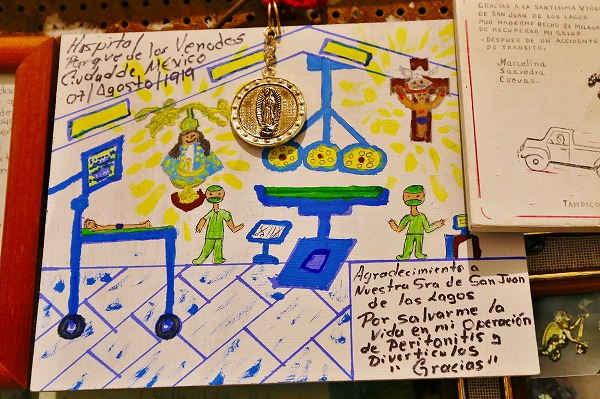 Hospital
Parque de los Venados
Ciudad de México
07/Agosto/1919
XIIX
Agradecimiento a
Nuestra Sra de San Juan
de los Lagos
Por salvarme la
Vida en mi Operación
de Peritonitis y
Diverticulos
"Gracias"
GRACIAS A LA SANTISIMA VIRGEN
DE SAN JUAN DE LOS LAGOS
POR HABERME HECHO EL MILAGRO
DE RECUPERAR MI SALUD
DESPUES DE UN ACCIDENTE
DE TRANSITO.
Marcelina
Saavedra
Cuevas.
TAMPICO